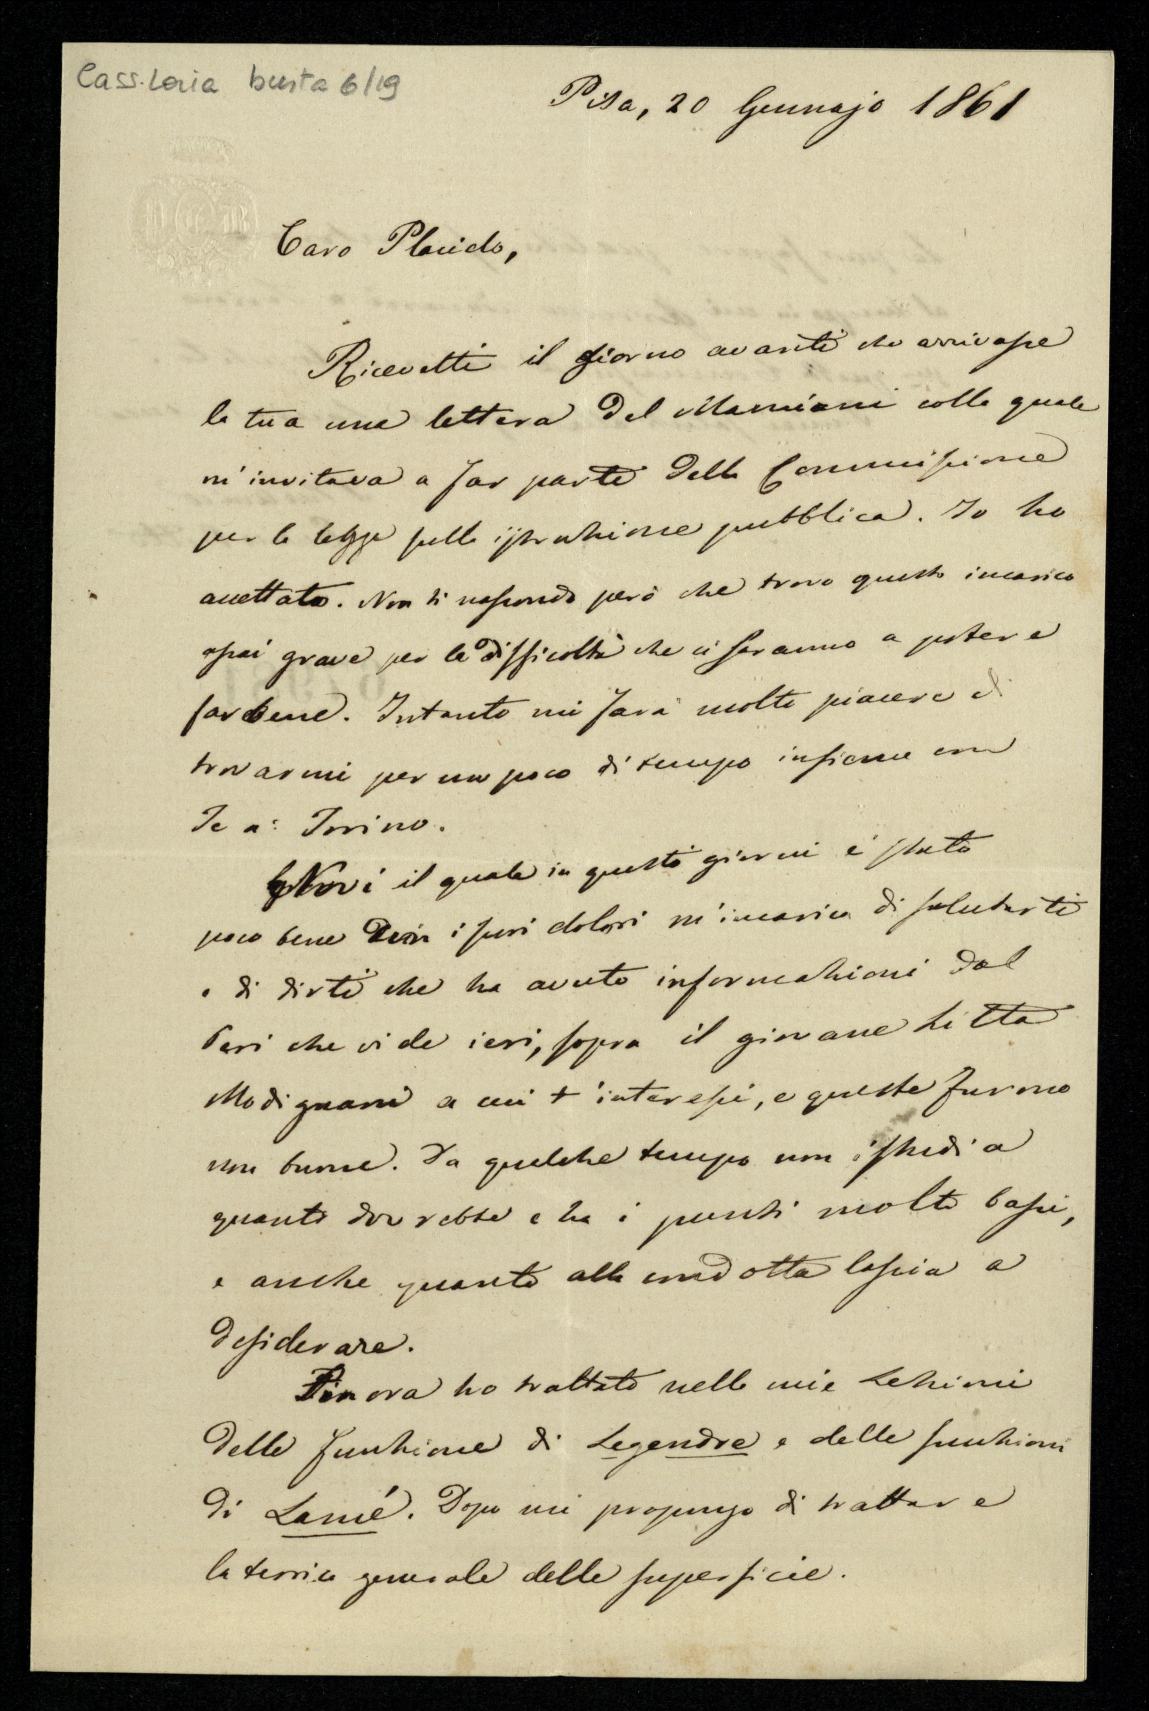 Cass. Loria busta 6/19
Pisa, 20 Gennajo 1861
Caro Placido,
Ricevetti il giorno avanti che arrivasse
la tua una lettera del Mamiani colla quale
m'invitava a far parte della Commissione
per la legge sulla istruzione pubblica. Io ho
accettato. Non ti nascondo però che trovo questo incarico
assai grave per le difficoltà che ci saranno a potere
far bene. Intanto mi farà molto piacere di
trovarmi per un poco di tempo insieme con
Te a Torino.
Novi il quale in questi giorni è stato
poco bene con i suoi dolori m'incarica di salutarti
e di dirti che ha avuto informazioni dal
che vide ieri, sopra il giovane Litta
Modignani a cui t'interessi, e queste furono
non buone. Da qualche tempo non istudia
quanto dovrebbe e ha i punti molto bassi,
e anche quanto alla condotta lascia a
desiderare.
Finora ho trattato nelle mie Lezioni
delle funzione di Legendre e delle funzioni
di Lamé. Dopo mi propongo di trattare
la teorica generale delle superficie.